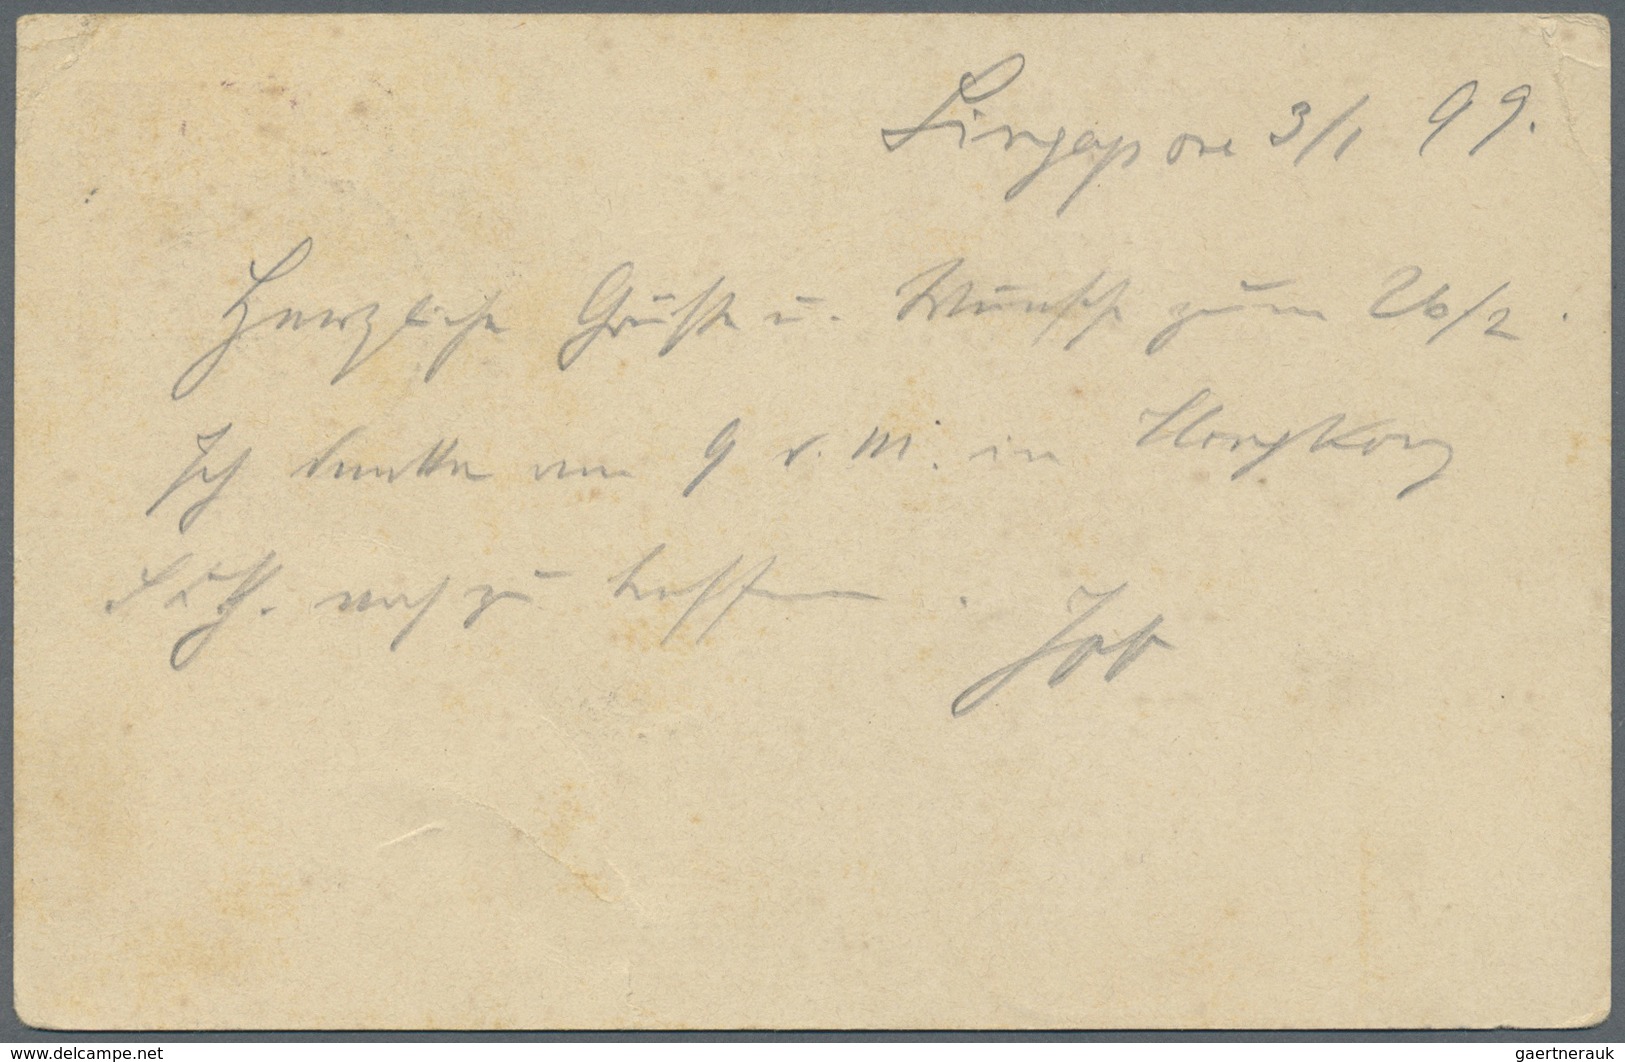 Singapore 3/1 99.
Herzliche Grüße u. Wünsche zum 26/2.
Ich am 9 d. M. in Hongkong
zu hoffen.
delcampe.net
gaertnerauk